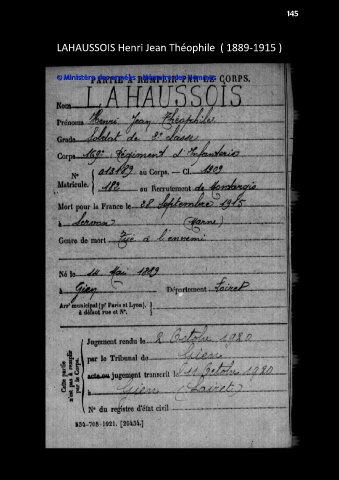 145
LAHAUSSOIS Henri Jean Théophile ( 1889-1915 )
PARTIE À REMPLIR PAR LE CORPS.
© Ministère des armées - Mémoire des hommes
Nom LAHAUSSOIS
Prénoms Henri Jean Théophile
Grade Soldat de 2e classe
Corps 169e Régiment d'Infanterie
N° Matricule. au Corps. — Cl. 1909
au Recrutement de Montargis
Mort pour la France le 28 Septembre 1915
à (Marne)
Genre de mort Tué à l'ennemi
Né le 14 Mai 1889
à Gien Département Loiret
Arr' municipal (p' Paris et Lyon), à défaut rue et N°.
Cette partie n'est pas à remplir par le Corps.
Jugement rendu le 2 Octobre 1920
par le Tribunal de Gien
acte ou jugement transcrit le 11 Octobre 1920
à Gien (Loiret)
N° du registre d'état civil
534-708-1921. [26434.]